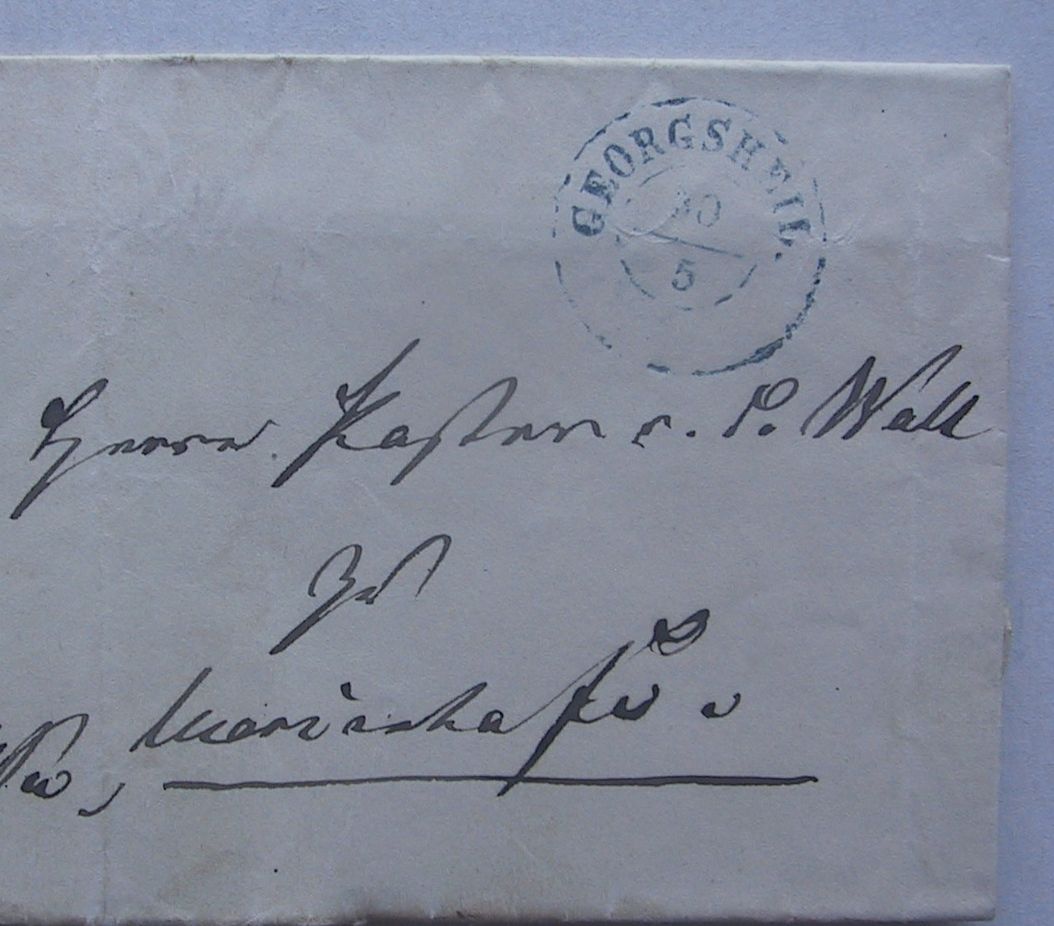 GEORGSHEIL.
30
5
Herrn Pastor v. d. Wall
zu
Marienhafe